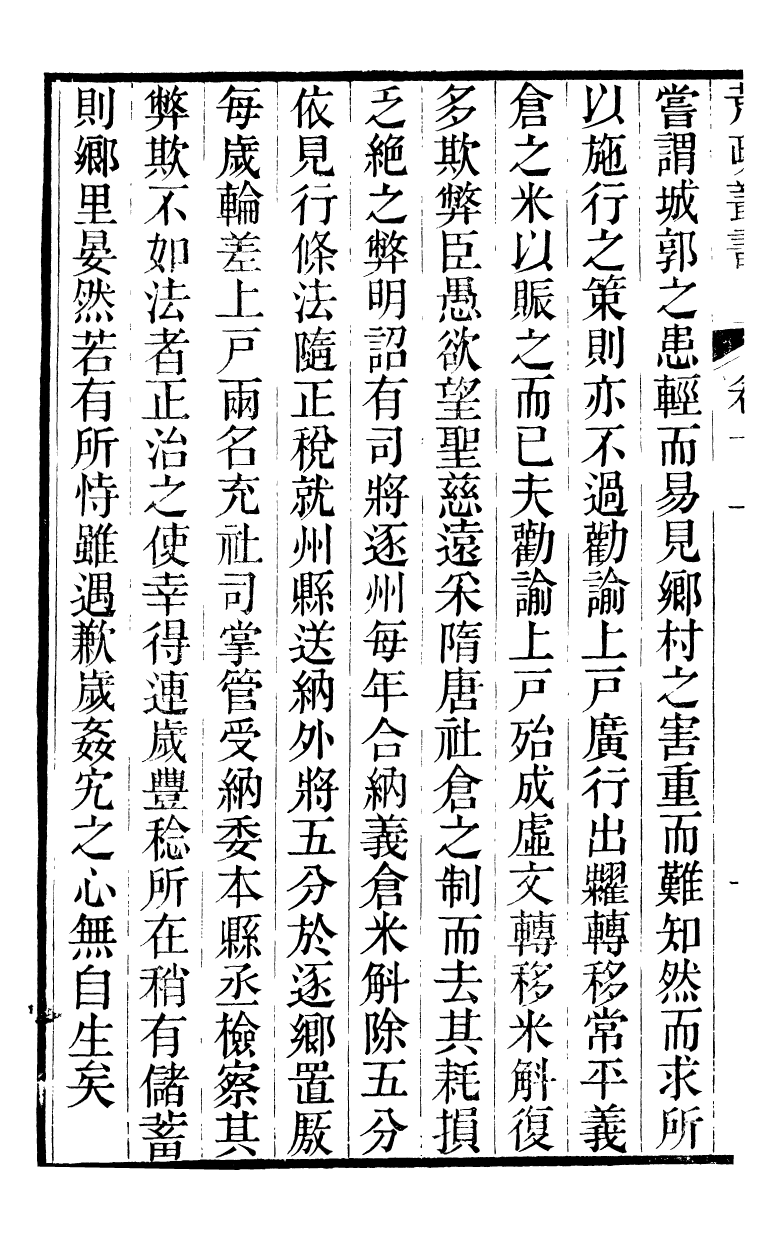 荒政叢書　卷一
嘗謂城郭之患輕而易見鄉村之害重而難知然而求所
以施行之策則亦不過勸諭上戸廣行出糶轉移常平義
倉之米以賑之而已夫勸諭上戸殆成虛文轉移米斛復
多欺弊臣愚欲望聖慈遠采隋唐社倉之制而去其耗損
乏絶之弊明詔有司將逐州每年合納義倉米斛除五分
依見行條法隨正稅就州縣送納外將五分於逐鄉置厫
每歲輪差上戸兩名充社司掌管受納委本縣丞檢察其
弊欺不如法者正治之使幸得連歲豐稔所在稍有儲蓄
則鄉里晏然若有所恃雖遇歉歲姦宄之心無自生矣